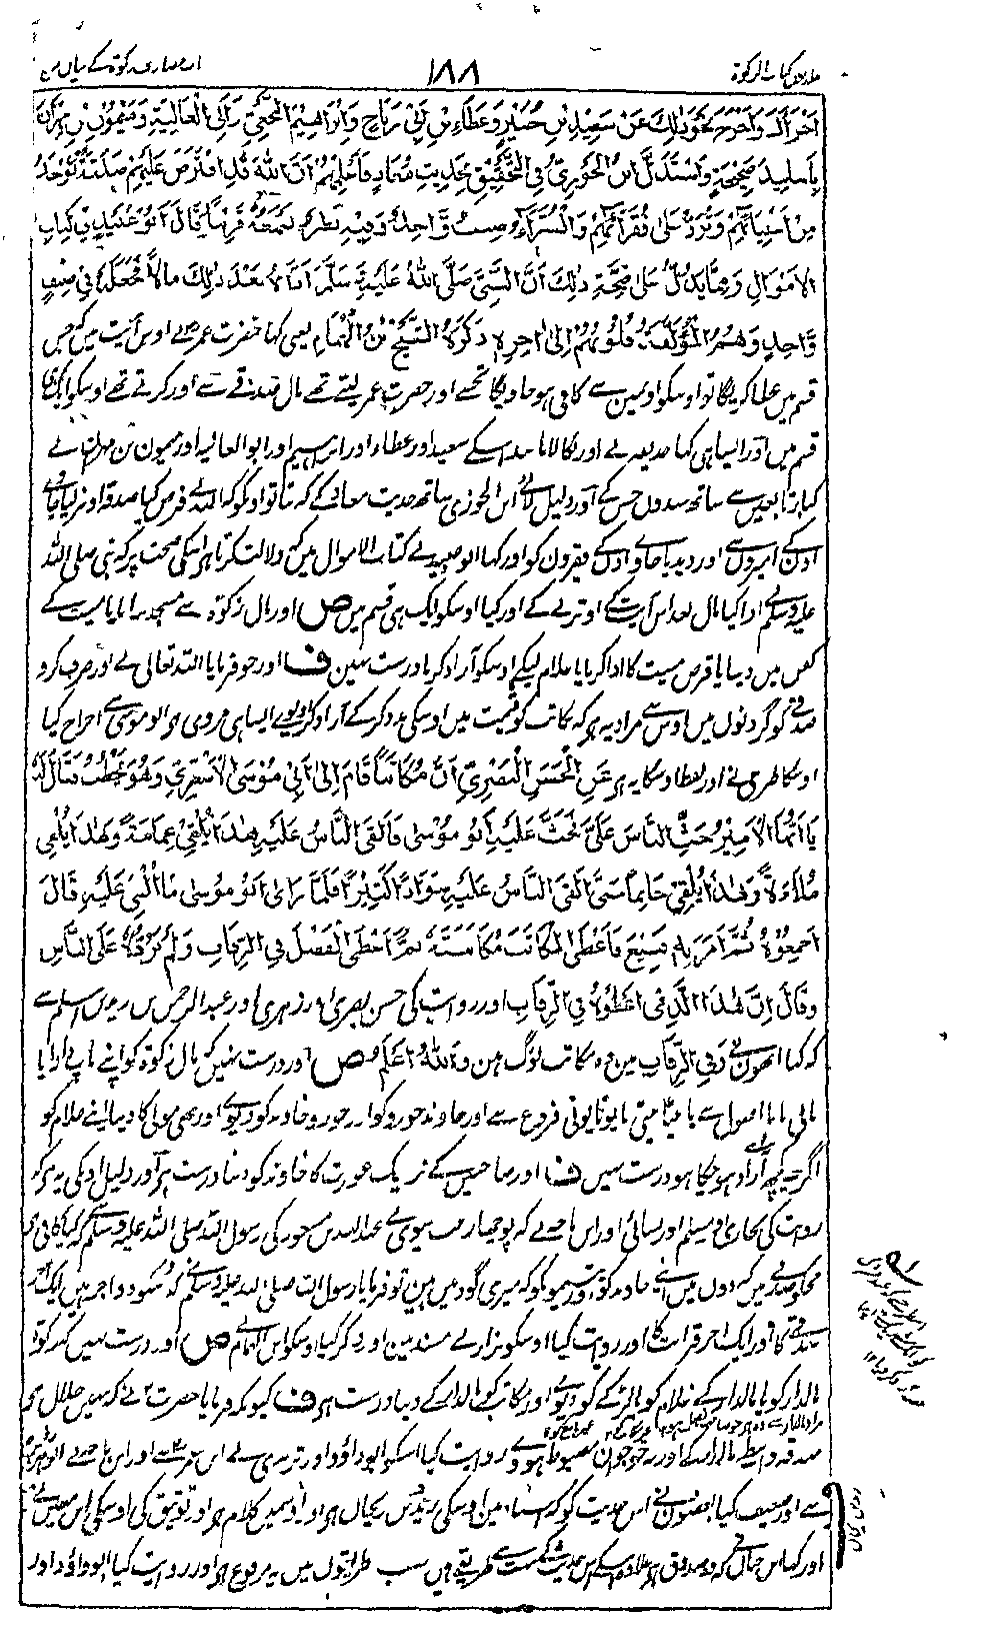 کتاب الزکوة ۱۸۸ اور مصارف زکوة کے بیان میں
وَاَخْرَجَ نَحْوَ ذٰلِكَ عَنْ سَعِيْدِ بْنِ جُبَيْرٍ وَعَطَاءِ بْنِ اَبِيْ رَبَاحٍ وَاِبْرَاهِيْمَ النَّخَعِيِّ وَاَبِي الْعَالِيَةِ وَمَيْمُوْنِ بْنِ مِهْرَانَ
بِاَسَانِيْدَ صَحِيْحَةٍ وَاسْتَدَلَّ ابْنُ الْجَوْزِيِّ فِي التَّحْقِيْقِ بِحَدِيْثِ مُعَاذٍ فَاَعْلِمْهُمْ اَنَّ اللهَ قَدِ افْتَرَضَ عَلَيْهِمْ صَدَقَةً تُؤْخَذُ
مِنْ اَغْنِيَائِهِمْ وَتُرَدُّ عَلٰى فُقَرَائِهِمْ وَالْفُقَرَاءُ صِنْفٌ وَّاحِدٌ وَفِيْهِ نَظَرٌ قَالَ اَبُوْ عُبَيْدٍ فِيْ كِتَابِ
الْاَمْوَالِ وَمِمَّا يَدُلُّ عَلٰى صِحَّةِ ذٰلِكَ اَنَّ النَّبِيَّ صَلَّى اللهُ عَلَيْهِ وَسَلَّمَ اَتَاهُ بَعْدَ ذٰلِكَ مَالٌ فَجَعَلَهُ فِيْ صِنْفٍ
وَّاحِدٍ وَهُمُ الْمُؤَلَّفَةُ قُلُوْبُهُمْ اِلٰى اٰخِرِهٖ ذَكَرَهُ الشَّيْخُ ابْنُ الْهُمَامِ یعنی کہا حضرت عمر نے اوس آیت میں کہ جس
قسم میں عطا کریگا تو اوسکو اونمین سے کافی ہو جاویگا تجھے اور حضرت عمر لیتے تھے مال صدقے سے اور کرتے تھے اوسکو ایک ہی
قسم میں اور ایسا ہی کہا حذیفہ نے اور نکالا مانند اسکے سعید اور عطاء اور ابراہیم اور ابو العالیہ اور میمون بن مہران نے
کبار تابعین سے ساتھ سندوں کے اور دلیل لائے ابن الجوزی ساتھ حدیث معاذ کے کہ بتا تو اونکو کہ اللہ نے فرض کیا صدقہ اونپر لیا جاوے
اون کے امیروں سے اور دیدیا جاوے اون کے فقیروں کو اور کہا ابو عبید نے کتاب الاموال میں کہ دلالت کرتا ہی اسکی صحت پر کہ نبی صلی اللہ
علیہ وسلم نے ادا کیا مال بعد اس آیت کے اوترنے کے اور کیا اوسکو ایک ہی قسم میں ص اور مال زکوة سے مسجد بنانا یا میت کے
کفن میں دینا یا قرض میت کا ادا کرنا یا غلام لیکے اوسکو آزاد کرنا درست نہین ف اور جو فرمایا اللہ تعالی نے اور صرف کرو
صدقے کو گردنوں میں اوس سے مراد یہ ہی کہ مکاتب کو قیمت میں اوسکی مدد کر کے آزاد کرا دیوے ایسا ہی مروی ہی ابو موسی سے اخراج کیا
اوسکا طبری نے اور لفظ اوسکا یہ ہی عَنِ الْحَسَنِ الْبَصْرِيِّ اَنَّ مُكَاتَبًا قَامَ اِلٰى اَبِيْ مُوْسَى الْاَشْعَرِيِّ وَهُوَ يَخْطُبُ فَقَالَ لَهُ
يَا اَيُّهَا الْاَمِيْرُ حُثَّ النَّاسَ عَلَيَّ فَحَثَّ عَلَيْهِ اَبُوْ مُوْسٰى فَاَلْقَى النَّاسُ عَلَيْهِ هٰذَا يُلْقِيْ عِمَامَةً وَهٰذَا يُلْقِيْ
مُلَاءَةً وَهٰذَا يُلْقِيْ خَاتَمًا حَتّٰى اَلْقَى النَّاسُ عَلَيْهِ سَوَادًا كَثِيْرًا فَلَمَّا رَاٰى اَبُوْ مُوْسٰى مَا اُلْقِيَ عَلَيْهِ قَالَ
اجْمَعُوْهُ ثُمَّ اَمَرَ بِهٖ فَبِيْعَ فَاَعْطَى الْمُكَاتَبَ مُكَاتَبَتَهُ ثُمَّ اَعْطَى الْفَضْلَ فِي الرِّقَابِ وَلَمْ يَرُدَّهُ عَلَى النَّاسِ
وَقَالَ اِنَّ هٰذَا الَّذِيْ اَعْطَوْهُ فِي الرِّقَابِ اور روایت کی حسن بصری اور زہری اور عبد الرحمن بن زید بن اسلم سے
کہ کہا انھون نے وَفِي الرِّقَابِ مین وہ مکاتب لوگ ہین وَاللهُ اَعْلَمُ ص اور درست نہین کہ مال زکوة کو اپنے باپ دادا یا
نانی نانا اصول سے یا بیٹا بیٹی یا پوتا پوتی فروع سے اور خاوند جورو کو اور جورو خاوند کو دیوے اور بھی مولی کا دینا اپنے غلام کو
اگرچہ کچھ آزاد ہو چکا ہو درست نہیں ف اور صاحبین کے نزدیک عورت کا خاوند کو دینا درست ہی اور دلیل اونکی یہ ہی کہ
روایت کی بخاری و مسلم اور نسائی اور ابن ماجہ نے کہ پوچھا زینب بیوی نے عبد اللہ بن مسعود کی رسول اللہ صلی اللہ علیہ وسلم سے کہ کیا کافی ہی
مجکو صدقے میں کہ دوں میں اپنے خاوند کو اور یتیمو کو کہ میری گود میں ہین تو فرمایا رسول اللہ صلی اللہ علیہ وسلم نے کہ دو اجر ہیں ایک اجر
صدقے کا اور ایک اجر قرابت کا اور روایت کیا اوسکو بزار نے مسند مین اور ذکر کیا اوسکو ابن الہمام نے ص اور درست نہیں کہ زکوة
مالدار کو یا مالدار کے غلام کو یا لڑکے کو دیوے اور مکاتب کو مالدار کے دینا درست ہی ف کیونکہ فرمایا حضرت نے کہ نہیں حلال ہی
صدقہ واسطے مالدار کے اور نہ جو جوان مضبوط ہووے روایت کیا اسکو ابوداؤد اور ترمذی نے ابن عمر سے اور ابن ماجہ نے ابو ہریرہ
سے اور ضعیف کیا بعضون نے اس حدیث کو کہ اسناد مین اوسکی ریحان ہی اور اوسمین کلام ہی اور توثیق کی اوسکی ابن معین نے
اور کہا ابن حبان نے کہ وہ صدوق ہی علاوہ اسکے اس حدیث کے بہت سے طریقے ہیں سب طریقوں میں یہ مرفوع ہی اور روایت کیا ابوداؤد اور